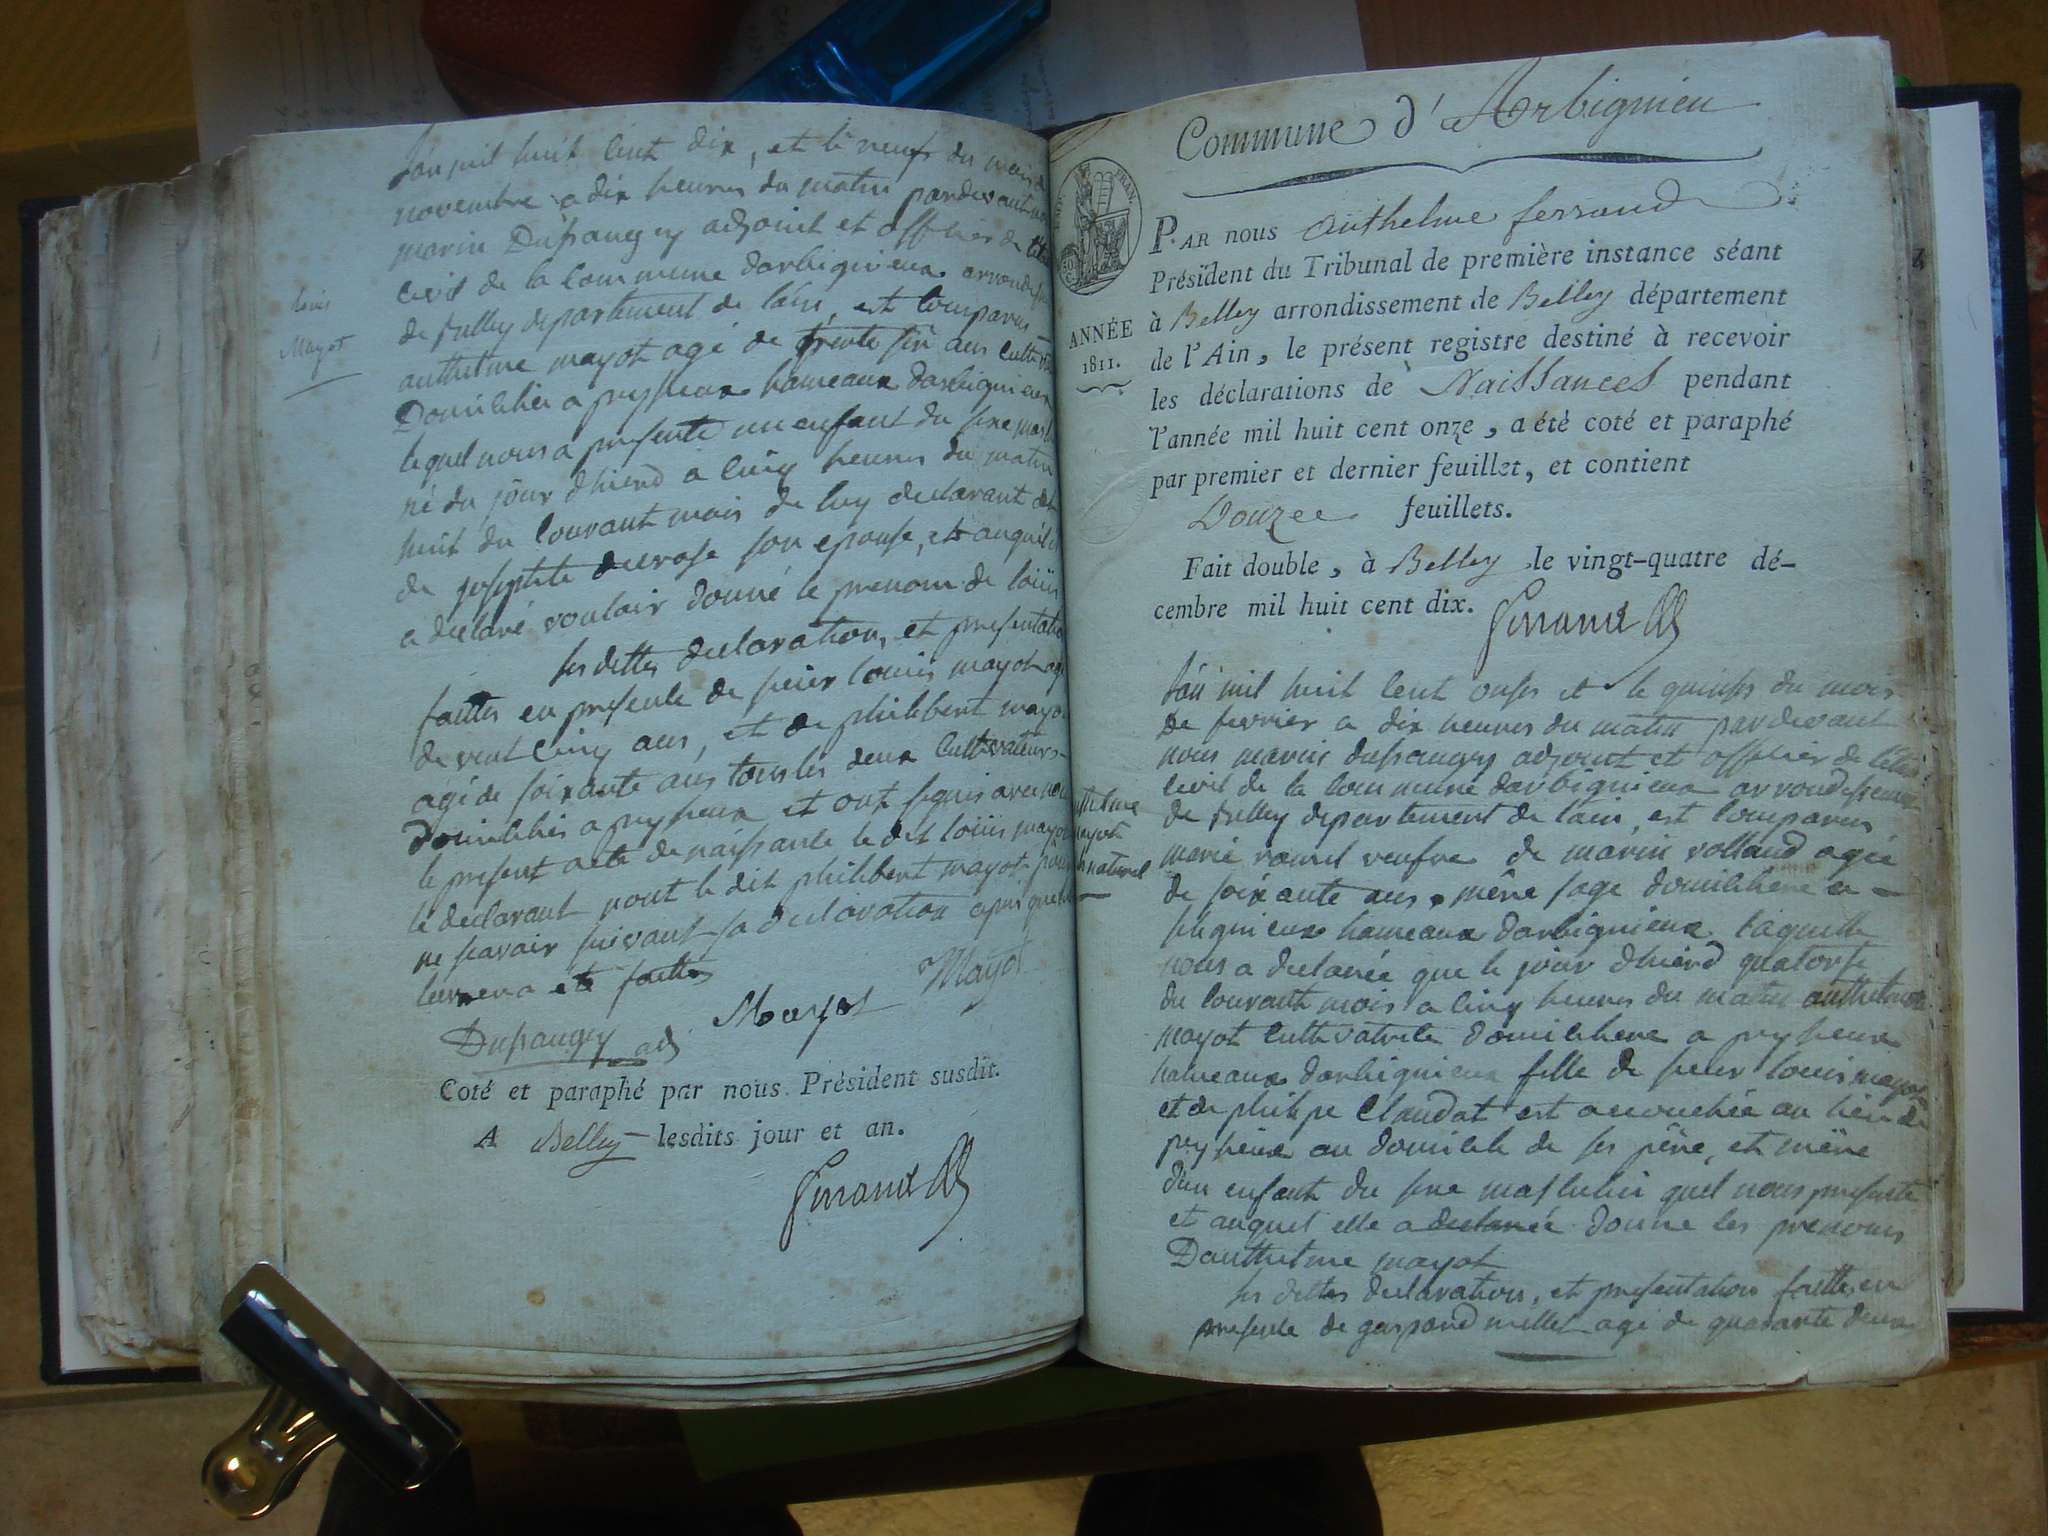 Louis
Mayot
Lan mil huit Cent dix, et le neuf du mois de
novembre a dix heures du matin pardevant nous
marin Dupraugey adjoint et officier de l'état
civil de la Commune darbignieux arrondis
de Belley departement de lain, est Comparus
anthelme mayot agé de trente six ans Cultiv
Domicilié a peyzieux hameaux darbignieux
lequel nous a presenté un enfant du sexe mas
né du jour dhierd a Cinq heures du matin
huit du Courant mois de luy declarant et
de josephte decrose son epouse, et auquel il
a declaré vouloir donné le prenom de loüis
ses dittes declaration, et presentation
faittes en presence de sieur louis mayot agé
de vent Cinq ans, et de philibert mayot
agé de soixante ans tous les deux Cultivateurs
domiciliés a peyzieux et ont signés avec nous
le present acte de naissance le dit loüis mayot
le declarant nont le dit philibert mayot pour
ne savoir suivant sa declaration apres que
lecture a eté faitte
Dupraugey adj Mayot Mayot
Coté et paraphé par nous Président susdit.
A Belley lesdits jour et an.
Ferrand
Commune d'Arbignieu
ANNÉE
1811.
PAR nous Anthelme ferrand
Président du Tribunal de première instance séant
à Belley arrondissement de Belley département
de l'Ain, le présent registre destiné à recevoir
les déclarations de Naissances pendant
l'année mil huit cent onze, a été coté et paraphé
par premier et dernier feuillet, et contient
Douze feuillets.
Fait double, à Belley le vingt-quatre dé-
cembre mil huit cent dix. Ferrand
thelme
mayot
naturel
Lan mil huit Cent onses et le quinse du mois
de fevrier a dix heures du matin pardevant
nous marin dupraugey adjoint et officier de l'état
Civil de la Commune darbignieux arrondissement
de Belley departement de lain, est Comparus
marie ramel veufve de marin rolland agée
de soixante ans, mêre sage domicilliéé a
hameaux darbignieux laquelle
nous a declarée que le jour dhierd quatorse
du Courant mois a Cinq heures du matin anthelmete
mayot Cultivatrice domiciliere a peyzieux
hameaux darbignieux fille de sieur louis mayot
et de philipe Claudat est accouchée au lieu de
peyzieux au domicile de ses père, et mère
dun enfant du sexe masculin quel nous presente
et auquel elle a declarée donne les prenoms
Danthelme mayot
ses dittes declaration, et presentation faittes en
presence de gaspard millet agé de quarante deux